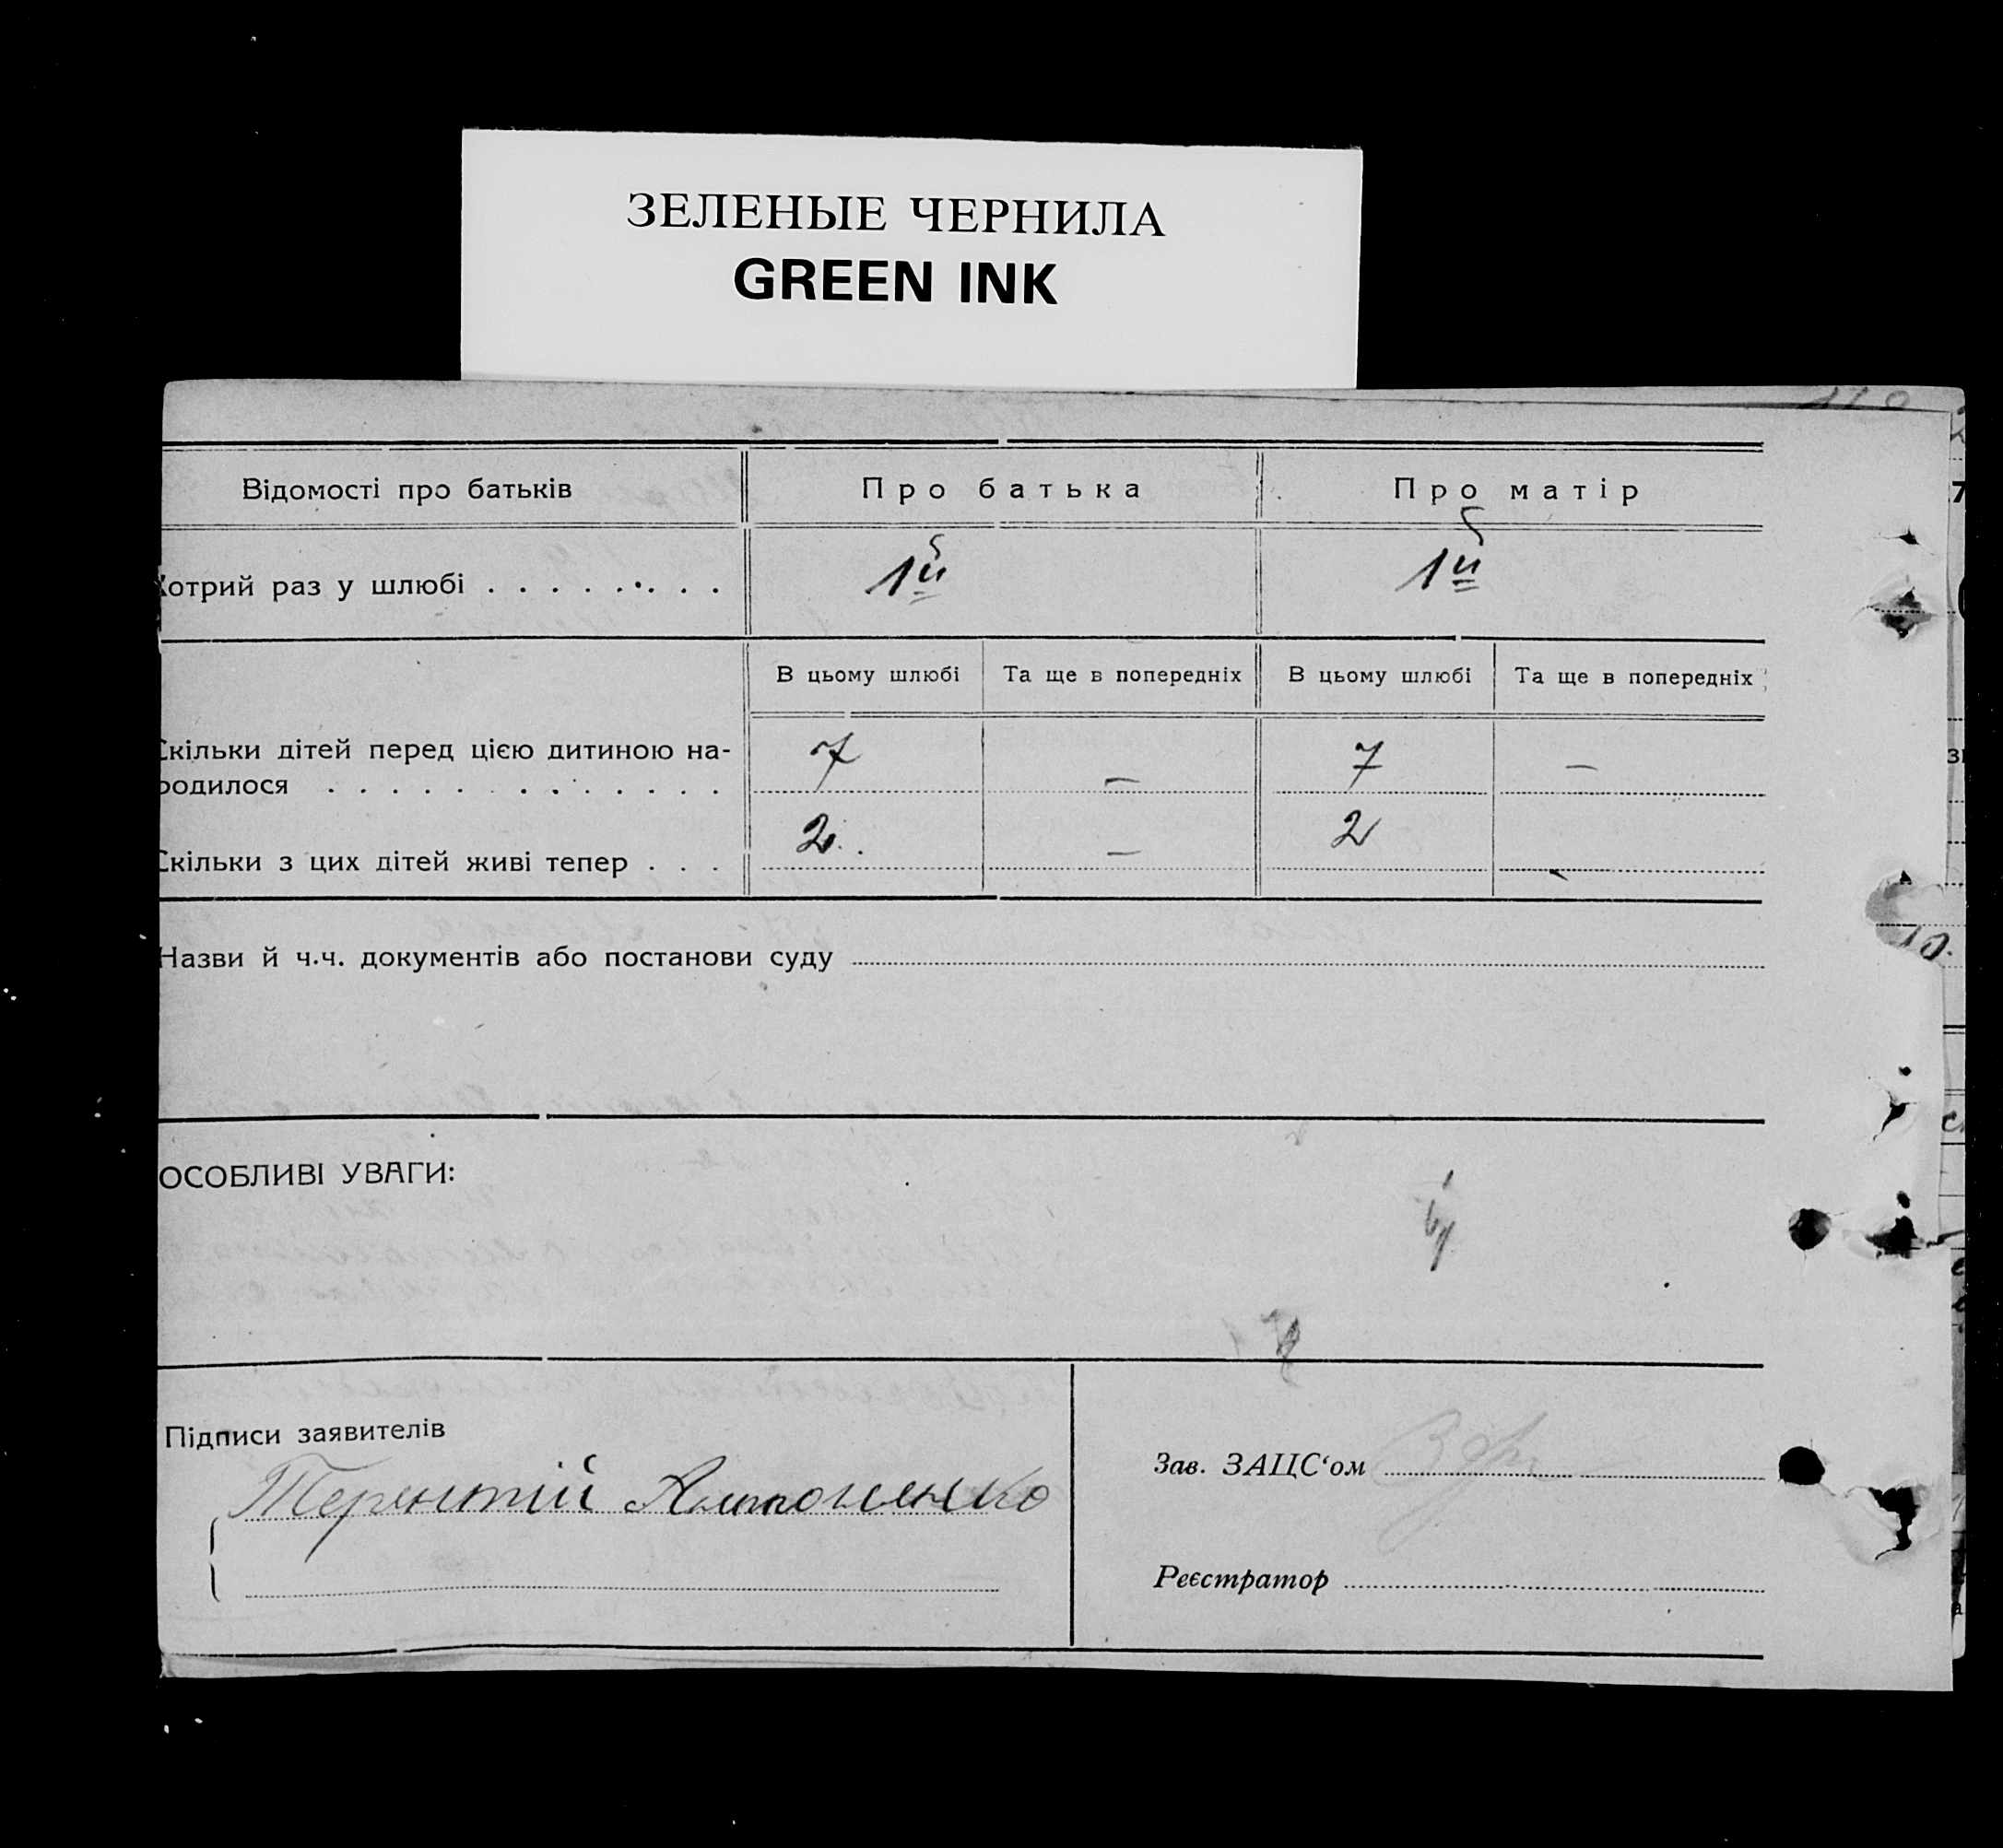 ЗЕЛЕНЫЕ ЧЕРНИЛА
GREEN INK
Відомості про батьків Про батька Про матір
Котрий раз у шлюбі 1й 1й
В цьому шлюбі Та ще в попередніх В цьому шлюбі Та ще в попередніх
Скільки дітей перед цією дитиною на-
родилося 7 — 7 —
Скільки з цих дітей живі тепер 2 — 2
Назви й ч.ч. документів або постанови суду
ОСОБЛИВІ УВАГИ:
Підписи заявителів
Терентій Антоненко
Зав. ЗАЦС‘ом
Реєстратор